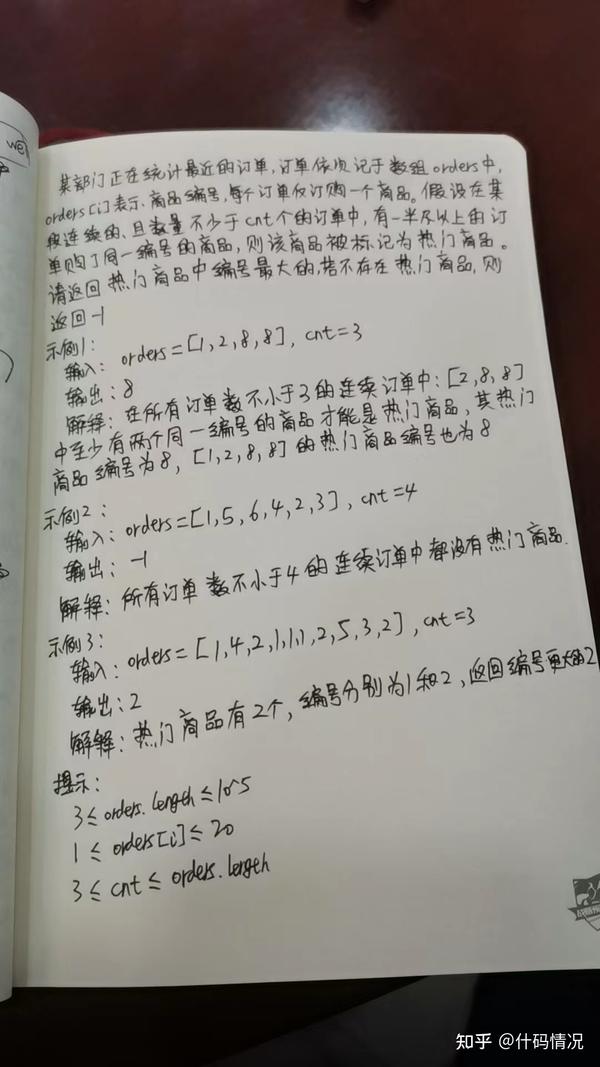 we
某部门正在统计最近的订单,订单依次记于数组orders中,
orders[i]表示商品编号,每个订单仅订购一个商品。假设在某
段连续的、且数量不少于cnt个的订单中,有一半及以上的订
单购了同一编号的商品,则该商品被标记为热门商品。
请返回热门商品中编号最大的,若不存在热门商品,则
返回-1
示例1:
输入: orders=[1,2,8,8], cnt=3
输出: 8
解释: 在所有订单数不小于3的连续订单中: [2,8,8]
中至少有两个同一编号的商品才能是热门商品,其热门
商品编号为8, [1,2,8,8]的热门商品编号也为8
示例2:
输入: orders=[1,5,6,4,2,3], cnt=4
输出: -1
解释: 所有订单数不小于4的连续订单中都没有热门商品.
示例3:
输入: orders=[1,4,2,1,1,1,2,5,3,2], cnt=3
输出: 2
解释: 热门商品有2个, 编号分别为1和2, 返回编号更大的2
提示:
3≤orders.length≤10^5
1≤orders[i]≤20
3≤cnt≤orders.length
知乎 @什码情况